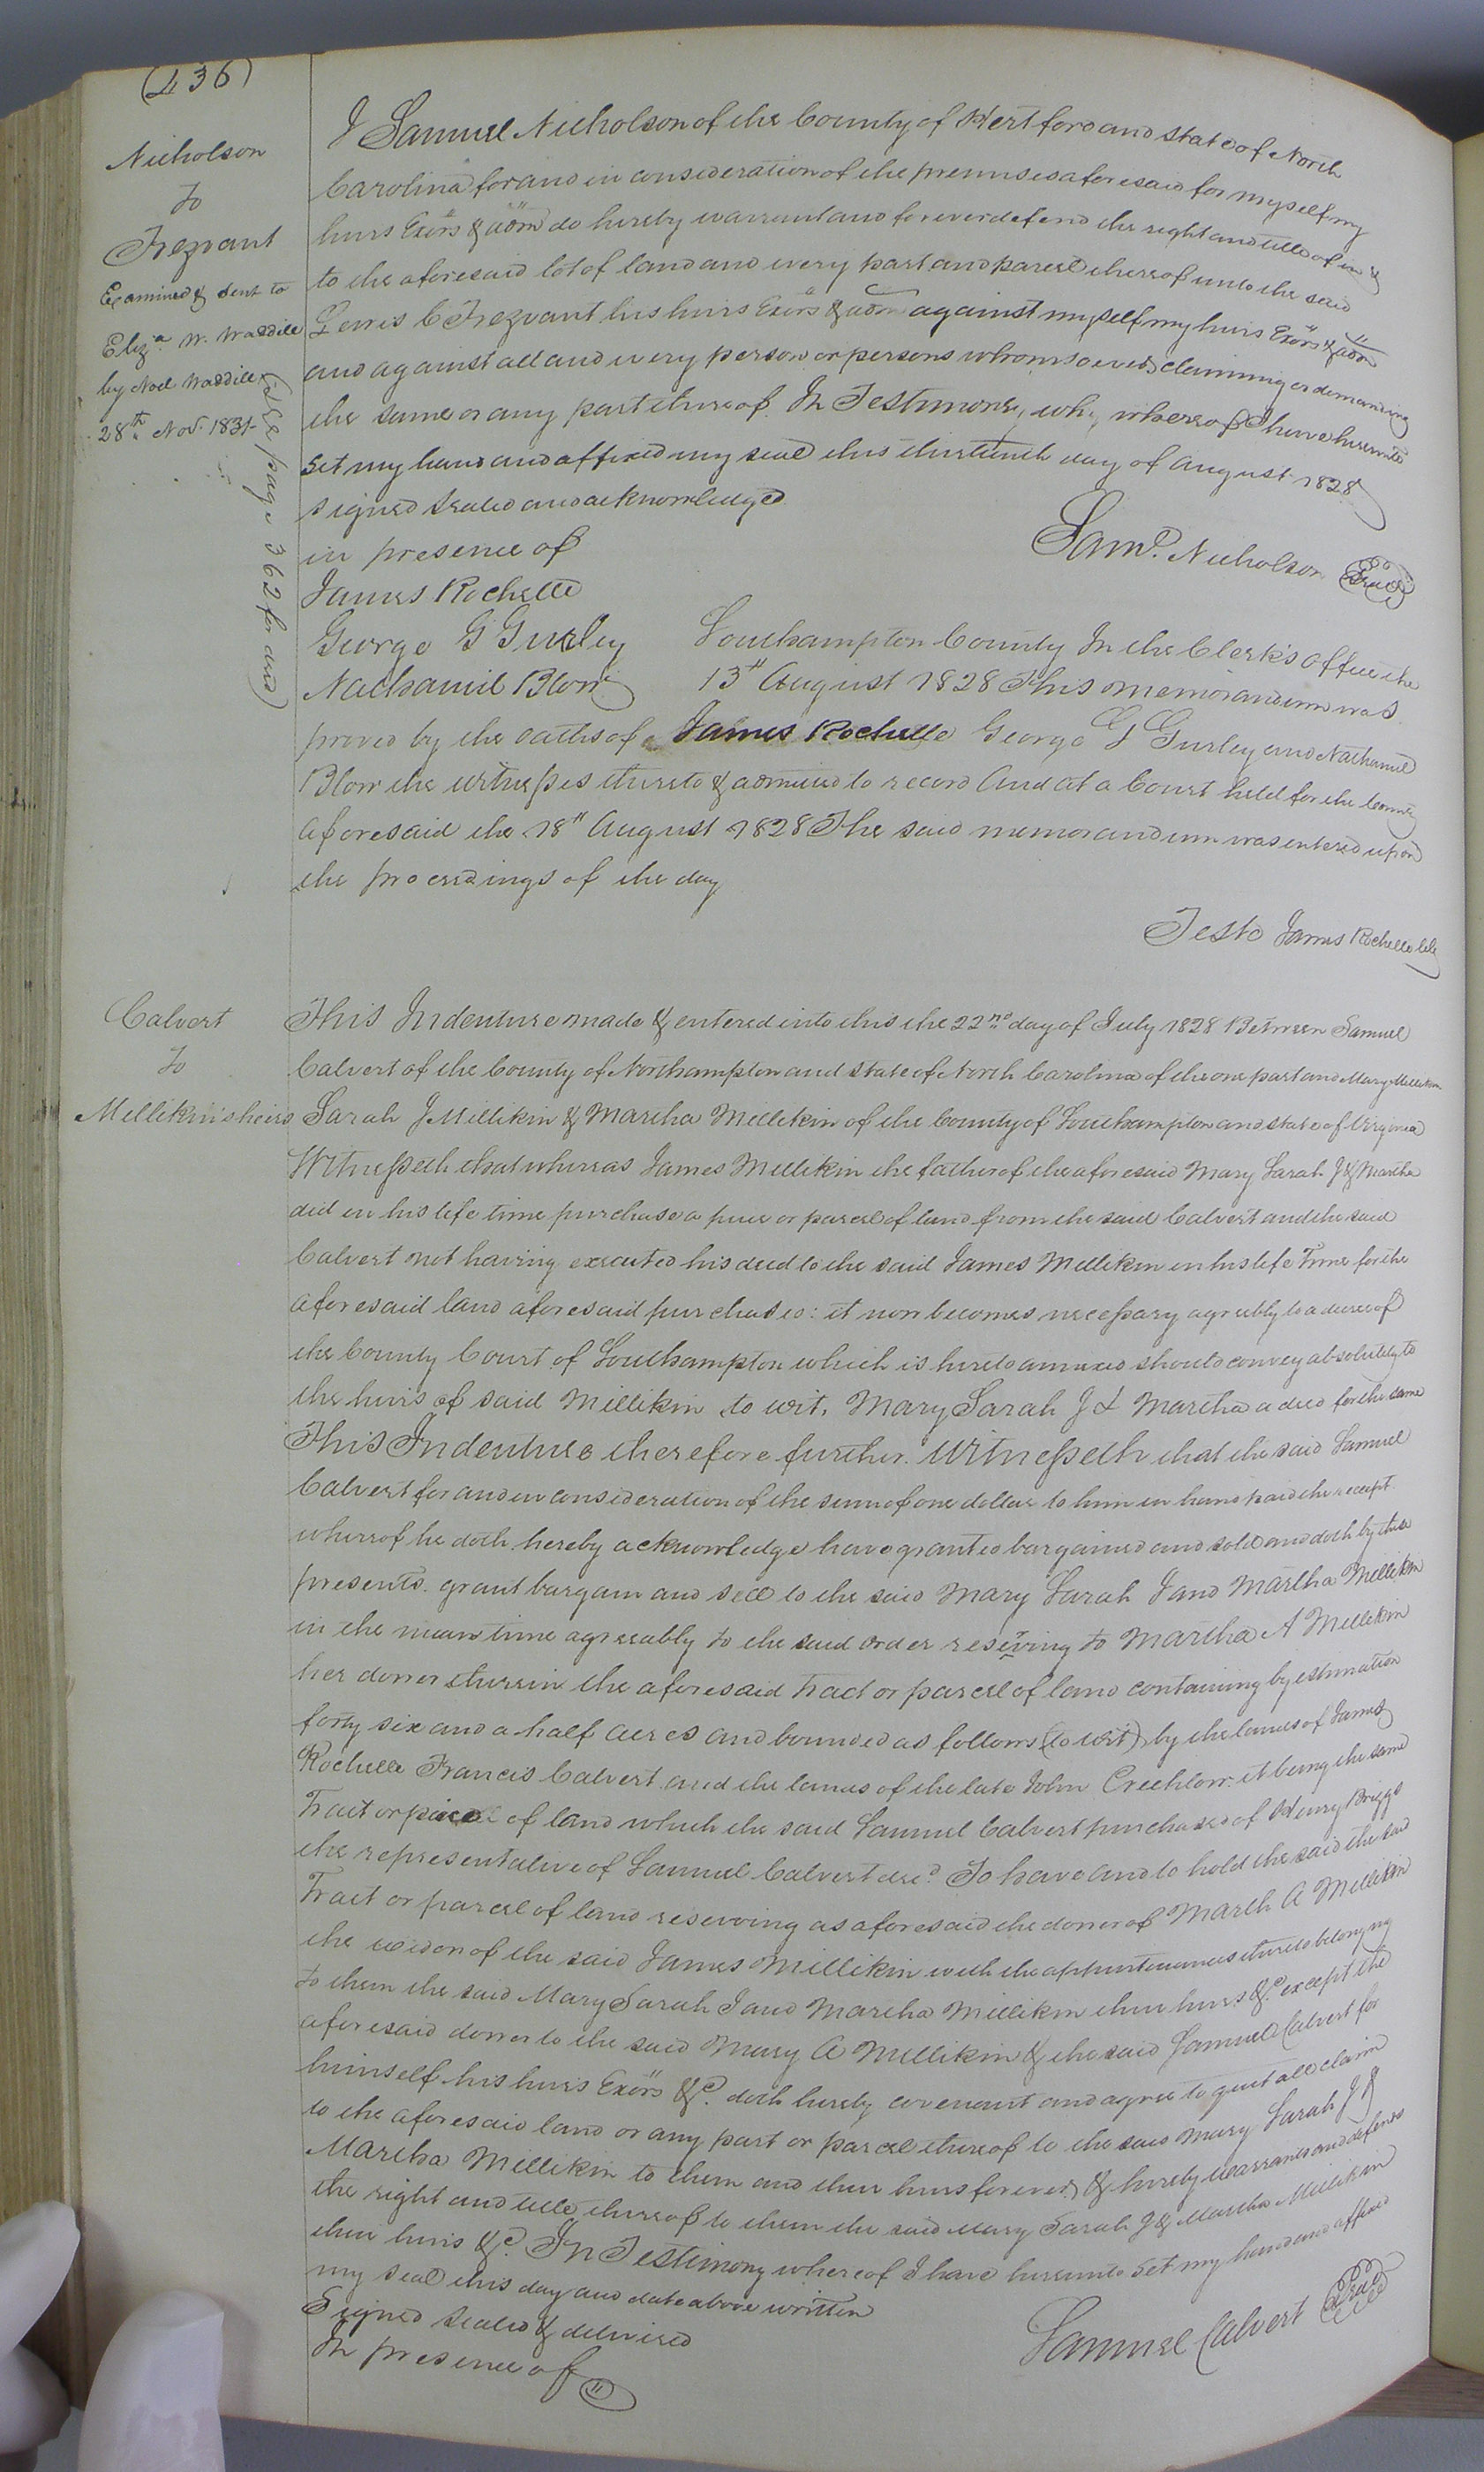 (236)
Nicholson
to
Trezvant
Examined & sent to
Eliz.a W. Waddill
by Noel Waddill
28th Nov. 1831
(See page 362 for deed)
I Samuel Nicholson of the County of Hertford and State of North
Carolina for and in consideration of the premises aforesaid for myself my
heirs Exors & adm do hereby warrant and forever defend the right and title of in &
to the aforesaid lot of land and every part and parcel thereof unto the said
Lewis C Trezvant his heirs Exors & adm against myself my heirs Exors & adm
and against all and every person or persons whomsoever claiming or demanding
the same or any part thereof. In Testimony whereof I have hereunto
set my hand and affixed my seal this thirteenth day of August 1828
signed sealed and acknowledged
in presence of
Saml. Nicholson Seal
James Rochelle
George G Gurley
Nathaniel Blow
Southampton County In the Clerk's office the
13th August 1828 This memorandum was
proved by the oaths of James Rochelle George G Gurley and Nathaniel
Blow the witnesses thereto & admitted to record And at a Court held for the County
aforesaid the 18th August 1828 The said memorandum was entered upon
the proceedings of the day
Teste James Rochelle clk
Calvert
to
Millikin's heirs
This Indenture made & entered into this the 22nd day of July 1828 Between Samuel
Calvert of the County of Northampton and State of North Carolina of the one part and Mary Millikin
Sarah J Millikin & Martha Millikin of the County of Southampton and state of Virginia
Witnesseth that whereas James Millikin the father of the aforesaid Mary Sarah J & Martha
did in his life time purchase a piece or parcel of land from the said Calvert and the said
Calvert not having executed his deed to the said James Millikin in his life Time for the
aforesaid land aforesaid purchased: it now becomes necessary agreebly to a decree of
the County Court of Southampton which is hereto annexed should convey absolutely to
the heirs of said Millikin to wit, Mary Sarah J & Martha a deed for the same
This Indenture therefore further Witnesseth that the said Samuel
Calvert for and in consideration of the sum of one dollar to him in hand paid the receipt
whereof he doth hereby acknowledge have granted bargained and sold and doth by these
presents grant bargain and sell to the said Mary Sarah J and Martha Millikin
in the mean time agreeably to the said order reserving to Martha A Millikin
her dower therein the aforesaid tract or parcel of land containing by estimation
forty six and a half acres and bounded as follows (to wit) by the lands of James
Rochelle Francis Calvert and the lands of the late John Crechlow it being the same
Tract or parcel of land which the said Samuel Calvert purchased of Henry Briggs
the representative of Samuel Calvert decd. To have and to hold the said the said
Tract or parcel of land reserving as aforesaid the dower of Marth A Millikin
the widow of the said James Millikin with the appurtenances thereto belonging
to them the said Mary Sarah J and Martha Millikin their heirs &c. except the
aforesaid dower to the said Mary A Millikin & the said Samuel Calvert for
himself his heirs Exors &c. doth hereby covenant and agree to quit all claim
to the aforesaid land or any part or parcel thereof to the said Mary Sarah J &
Martha Millikin to them and their heirs forever & hereby warrants and defends
the right and title thereof to them the said Mary Sarah J & Martha Millikin
their heirs &c. In Testimony whereof I have hereunto set my hand and affixed
my seal this day and date above written
Signed sealed & delivered
In presence of
Samuel Calvert Seal